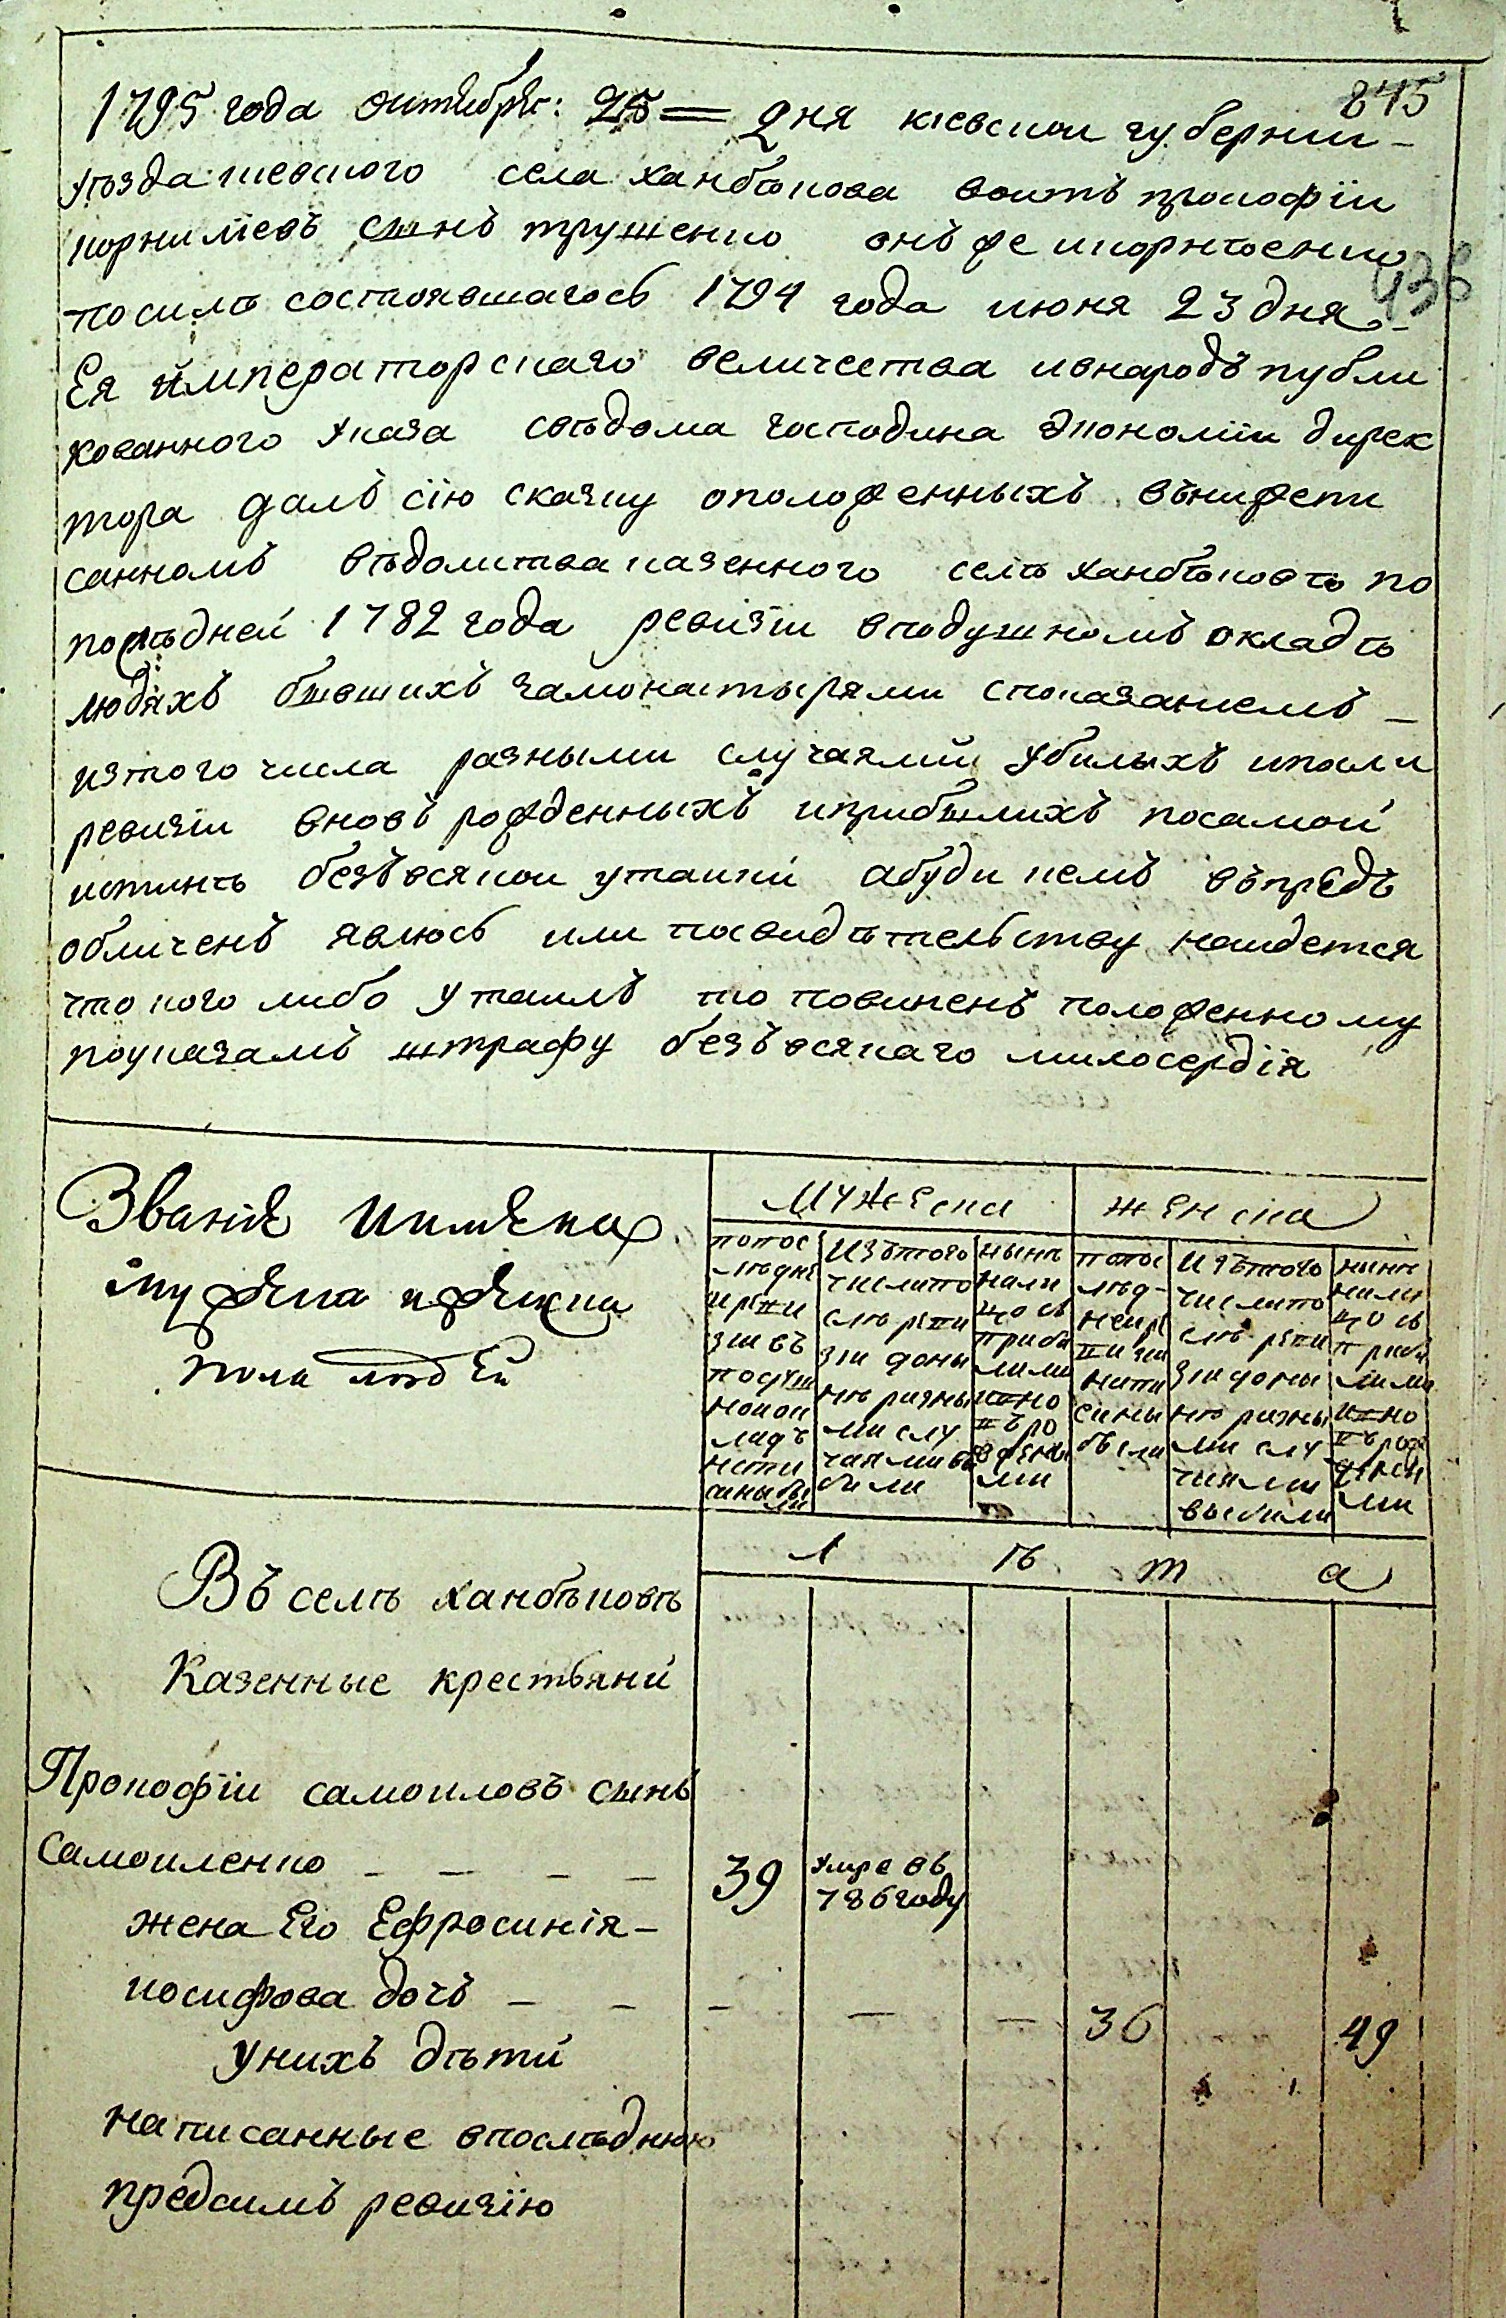 845
1795 года октября: 25 = дня кіевскои губерніи –
уѣзда кіевского села ханбѣкова воитъ прокофіи
корниліевъ сынъ трушенко онъже и корнѣенко
436
посилѣ состоявшагось 1794 года июня 23 дня –
Ея императорскаго величества ивнародъ публи
кованного указа свѣдома господина економіи дирек
тора далъ сію скаску оположенныхъ внижепи
санномъ вѣдомства казенного селѣ ханбѣковѣ по
послѣдней 1782 года ревизіи вподушномъ окладѣ
людяхъ бывшихъ замонастырями споказаниемъ –
изтого числа разными случаями убилыхъ ипосли
ревизіи вновъ рожденныхъ иприбылихъ посамой
истинѣ безъвсякои утаики абуди кемъ впредъ
обличенъ явлюсь или посвидѣтельству наидется
что кого либо утаилъ то повиненъ положенному
поуказамъ штрафу безъвсякаго милосердія
Званіе иимяна
мужеска ижеска
пола людей
мужеска
женска
попос
лѣдне
и реви
зіи въ
подуш
номок
ладѣ
напи
саны бы
ли
изътого
числапо
слѣ реви
зіи доны
нѣ разны
ми слу
чаями вы
били
нынѣ
нали
цо съ
приби
лими
ивно
въро
жденны
ми
попос
лѣд–
неире
визіи
напи
саны
были
изътого
числапо
слѣ реви
зіи доны
нѣ разны
ми слу
чаями
выбили
нынѣ
нали
цо съ
приби
лими
ивно
въро
жденны
ми
л ѣ т а
Въ селѣ ханбѣковѣ
Казенные крестьяни
Прокофіи самоиловъ сынъ
Самоиленко – – – – 39 умре въ
786 году
жена Его Ефросинія –
иосифова дочъ – – – – – 36 49
У нихъ дѣти
написанные впослѣднюю
предсимъ ревизію